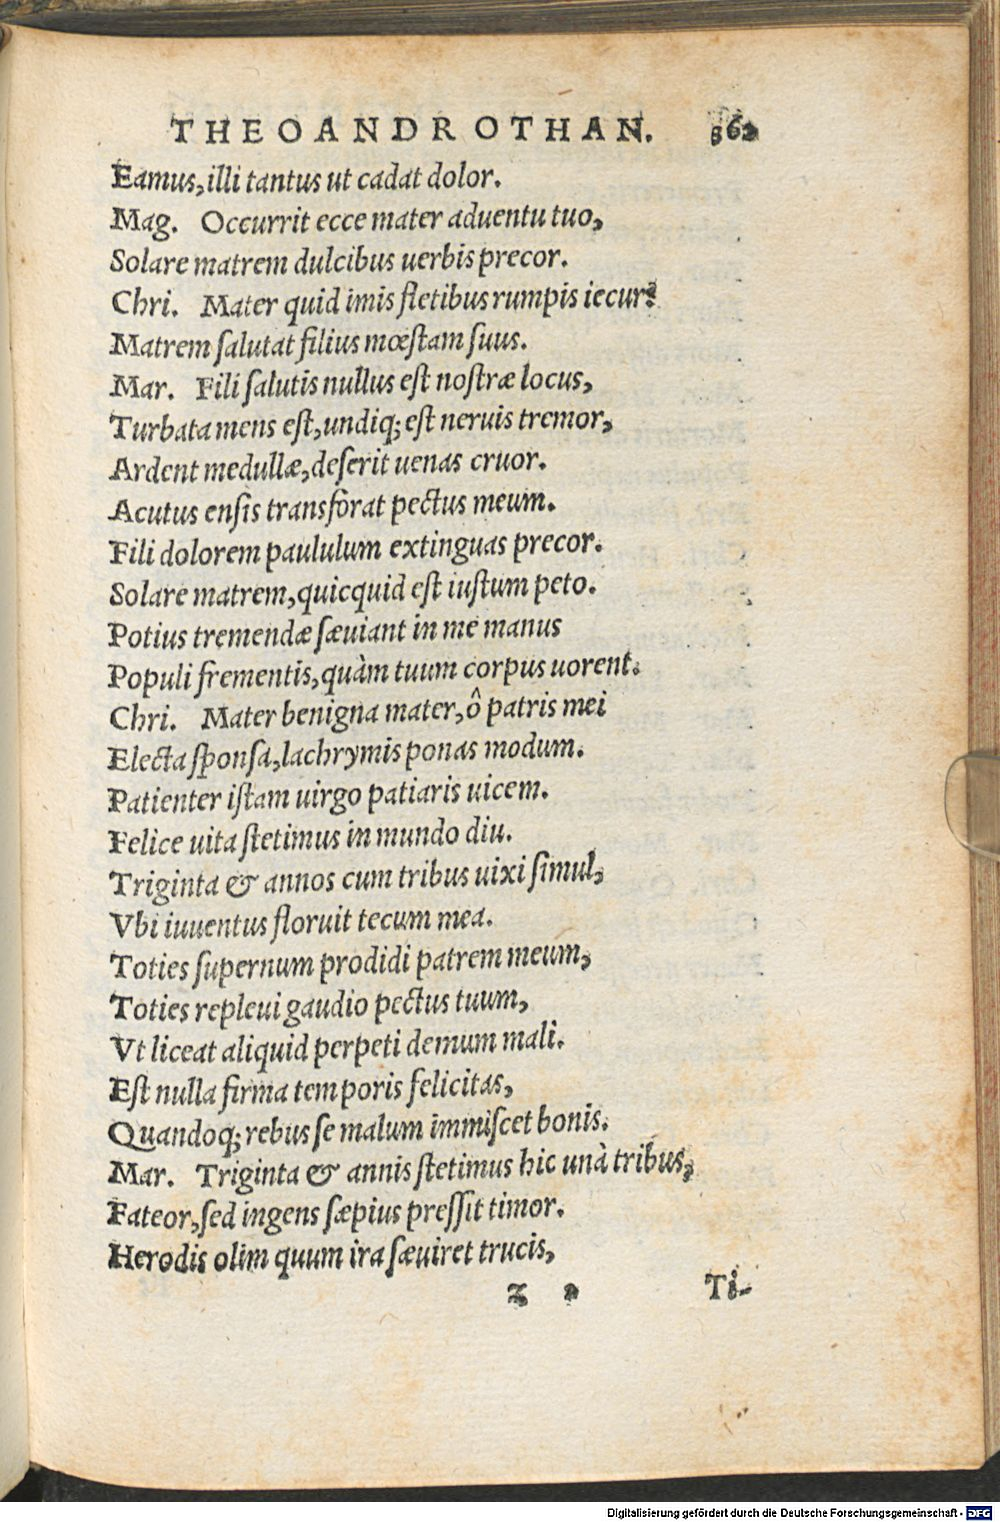 THEOANDROTHAN.
Eamus, illi tantus ut cadat dolor.
Mag. Occurrit ecce mater aduentu tuo,
Solare matrem dulcibus uerbis precor.
Chri. Mater quid imis fletibus rumpis iecur?
Matrem ſalutat filius mœſtam ſuus.
Mar. Fili ſalutis nullus eſt noſtræ locus,
Turbata mens eſt, undiq; eſt neruis tremor,
Ardent medullæ, deſerit uenas cruor.
Acutus enſis transforat pectus meum.
Fili dolorem paululum extinguas precor.
Solare matrem, quicquid eſt iuſtum peto.
Potius tremendæ ſæuiant in me manus
Populi frementis, quàm tuum corpus uorent.
Chri. Mater benigna mater, ô patris mei
Electa ſponſa, lachrymis ponas modum.
Patienter iſtam uirgo patiaris uicem.
Felice uita ſtetimus in mundo diu.
Triginta & annos cum tribus uixi ſimul,
Vbi iuuentus floruit tecum mea.
Toties ſupernum prodidi patrem meum,
Toties repleui gaudio pectus tuum,
Vt liceat aliquid perpeti demum mali.
Eſt nulla firma temporis felicitas,
Quandoq; rebus ſe malum immiſcet bonis.
Mar. Triginta & annis ſtetimus hic unà tribus,
Fateor, ſed ingens ſæpius preſſit timor.
Herodis olim quum ira ſæuiret trucis,
z
Ti-
Digitalisierung gefördert durch die Deutsche Forschungsgemeinschaft - DFG